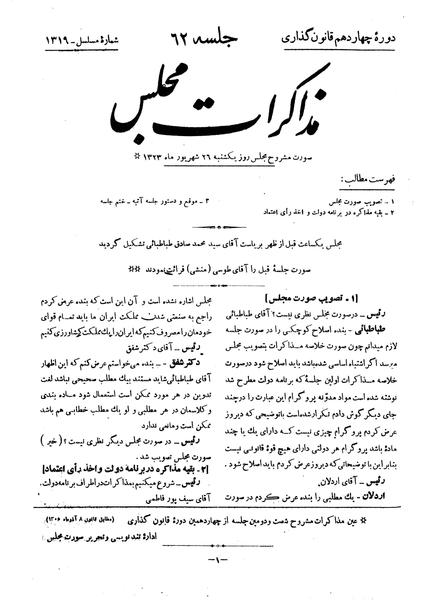 دورهٔ چهاردهم قانون‌گذاری
جلسه ۶۲
شمارهٔ مسلسل - ۱۳۱۹
مذاکرات مجلس
صورت مشروح مجلس روز یکشنبه ۲۶ شهریور ماه ۱۳۲۳ *
فهرست مطالب :
۱ - تصویب صورت مجلس
۲ - بقیه مذاکره در برنامه دولت و اخذ رأی اعتماد
۳ - موقع و دستور جلسه آتیه - ختم جلسه
مجلس یکساعت قبل از ظهر بریاست آقای سید محمد صادق طباطبائی تشکیل گردید
صورت جلسهٔ قبل را آقای طوسی (منشی) قرائت نمودند **
[۱ - تصویب صورت مجلس]
رئیس - درصورت مجلس نظری نیست؟ آقای طباطبائی
طباطبائی - بنده اصلاح کوچکی را در صورت
لازم میدانم چون صورت خلاصه مذاکرات بتصویب مجلس
میرسد اگر اشتباه اساسی شده باشد باید اصلاح شود درصورت
خلاصه مذاکرات اولین جلسه که برنامه دولت مطرح شد
نوشته شده است مواد مدونه پروگرام این عبارت را درچند
جای دیگر گوش دادم تکرار شده است باتوضیحی که دیروز
عرض کردم پروگرام چیزی نیست که دارای یک یا چند
ماده باشد پروگرام هر دولتی دارای هیچ قوهٔ قانونی نیست
بنابراین با توضیحاتی که دیروز عرض کردم باید اصلاح شود .
رئیس - آقای اردلان .
اردلان - یک مطلبی را بنده عرض کردم در صورت
مجلس اشاره نشده است و آن این است که بنده عرض کردم
راجع به صنعتی شدن مملکت ایران ما باید تمام قوای
خودمان را مصروف کنیم که ایران را یک مملکت کشاورزی کنیم
رئیس - آقای دکتر شفق
دکتر شفق - بنده می‌خواستم عرض کنم که این اظهار
آقای طباطبائی شاید مستند بیک مطلب صحیحی نباشد لغت
تدوین در هر مورد ممکن است استعمال شود ماده بندی
و کلاسمان در هر مطلبی و لو یک مطلب خطابی هم باشد
ممکن است و مانعی ندارد
رئیس - در صورت مجلس دیگر نظری نیست ؟ (خیر)
صورت مجلس تصویب شد .
[۲ - بقیه مذاکره در برنامه دولت و اخذ رأی اعتماد]
رئیس - شروع میکنیم بمذاکرات در اطراف برنامه دولت.
آقای سیف پور فاطمی
* عین مذاکرات مشروح شصت و دومین جلسه از چهاردهمین دورهٔ قانون گذاری (مطابق قانون ۸ آذر ماه ۱۳۰۵)
ادارهٔ تند نویسی و تحریر صورت مجلس
-۱-